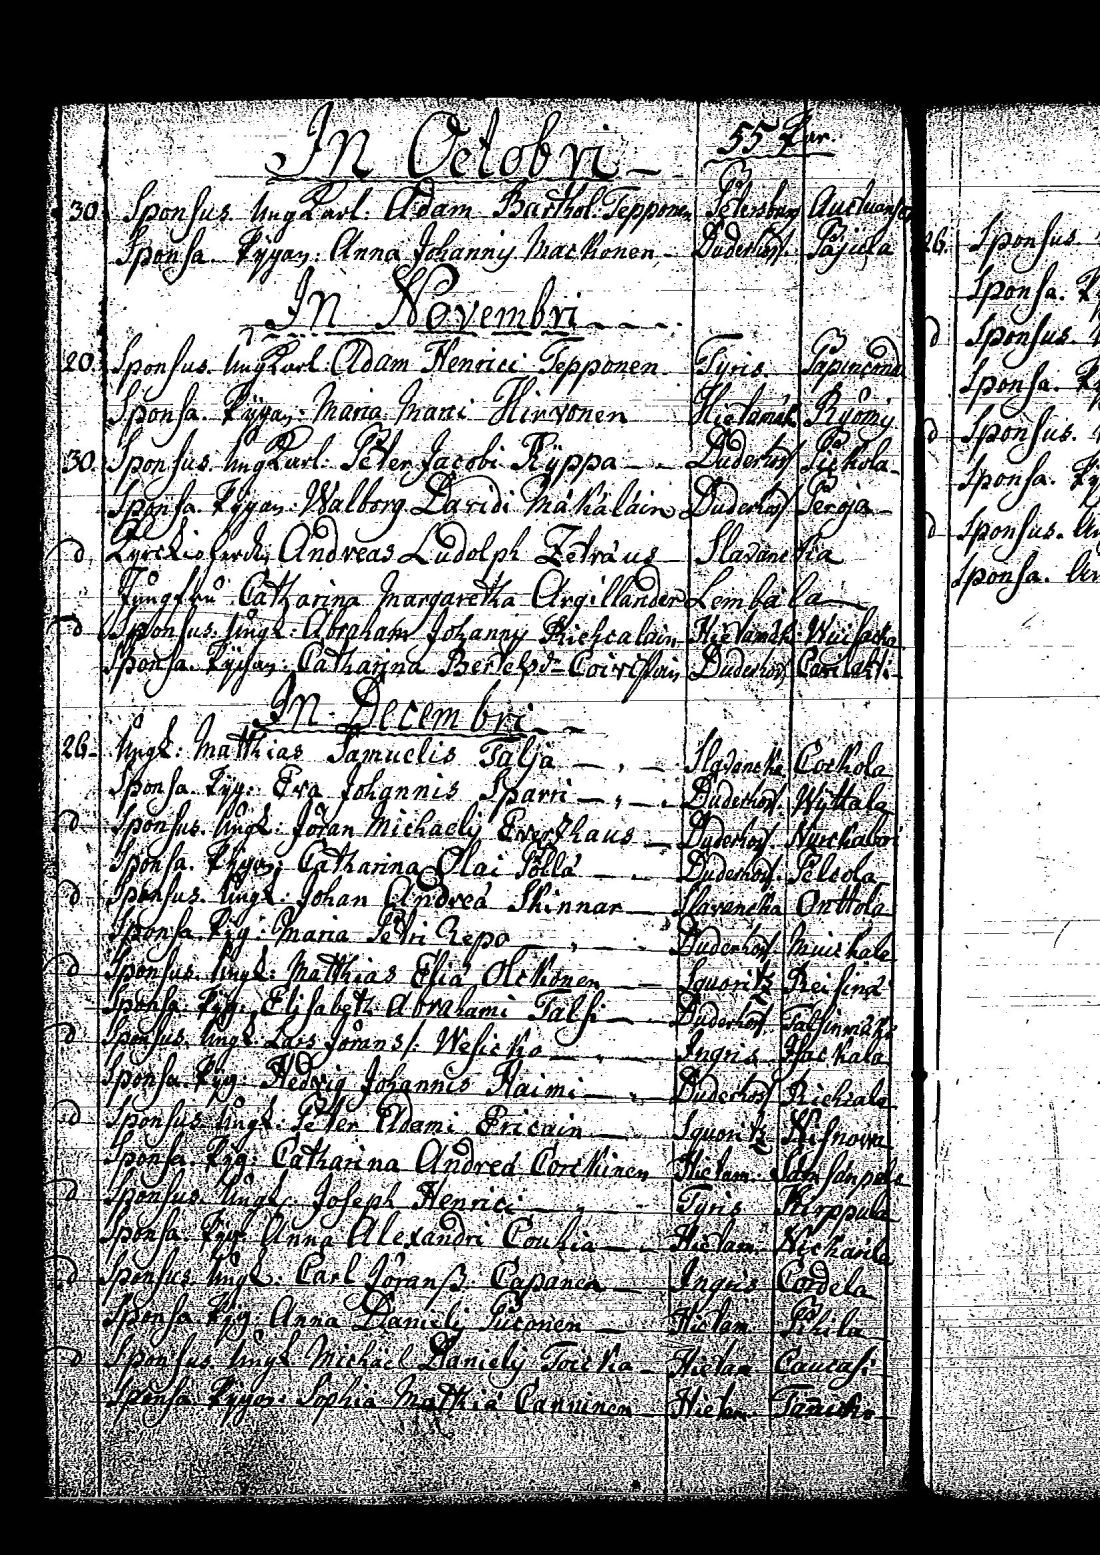 In Octobri
55 Par.
30. Sponsus. UngKarl: Adam Barthol: Tepponen Petersburg
Sponsa. Pigan: Anna Johannis Mackonen Duderhof. Pajula
In Novembri
20. Sponsus. UngKarl: Adam Henrici Tepponen Tyris
Sponsa. Pigan: Maria Matti Hirvonen Hietamäk Ryömy
30. Sponsus. UngKarl: Peter Jacobi Ryppa Duderhof Pickola
Sponsa. Pigan: Walborg Davidi Mäkäläin Duderhof Perja
d Kyrckioherd: Andreas Ludolph Zeträus Slavanckia
Jungfru Catharina Margaretha Argillander Lembala
d Sponsus. Ungk: Abraham Johannis Hietamäk.
Sponsa. Pigan: Catharina Bertelsdr Duderhof
In Decembri
26. Ungk: Matthias Samuelis Talja Slavancka Cockola
Sponsa. Pig: Eva Johannis Sparri Duderhof. Wyttala
d Sponsus. Ungk: Jöran Michaelis Everthaus Duderhof.
Sponsa. Pigan: Catharina Olai Pöllä Duderhof. Pelcola
d Sponsus. Ungk: Johan Andreä Skinnar Slavancka Onttola
Sponsa. Pig: Maria Petri Repo Duderhof Muickale
d Sponsus. Ungk: Matthias Eliä Olckonen Squoritz
Sponsa. Pig: Elisabeth Abrahami Talsi Duderhof. Talsinmäki
d Sponsus. Ungk: Lars Ingris Hackala
Sponsa. Pig: Hedvig Johannis Haimi Duderhof
d Sponsus. Ungk: Peter Adami Ericain Squoritz
Sponsa. Pig: Catharina Andreä Corckinen Hietam.
d Sponsus. Ungk: Joseph Henrici Tyris Kirppula
Sponsa. Pig: Anna Alexandri Coukia Hietam.
d Sponsus. Ungk: Carl Jöranß. Capanen Ingris Cordela
Sponsa. Pig: Anna Danielis Hietam. Pihila
d Sponsus. Ungk: Michäel Danielis Toicka Hietam Caucasi
Sponsa. Pigan: Sophia Mathiä Canninen Hietam
26. Sponsus
Sponsa.
d Sponsus.
Sponsa.
d Sponsus.
Sponsa.
d Sponsus.
Sponsa.